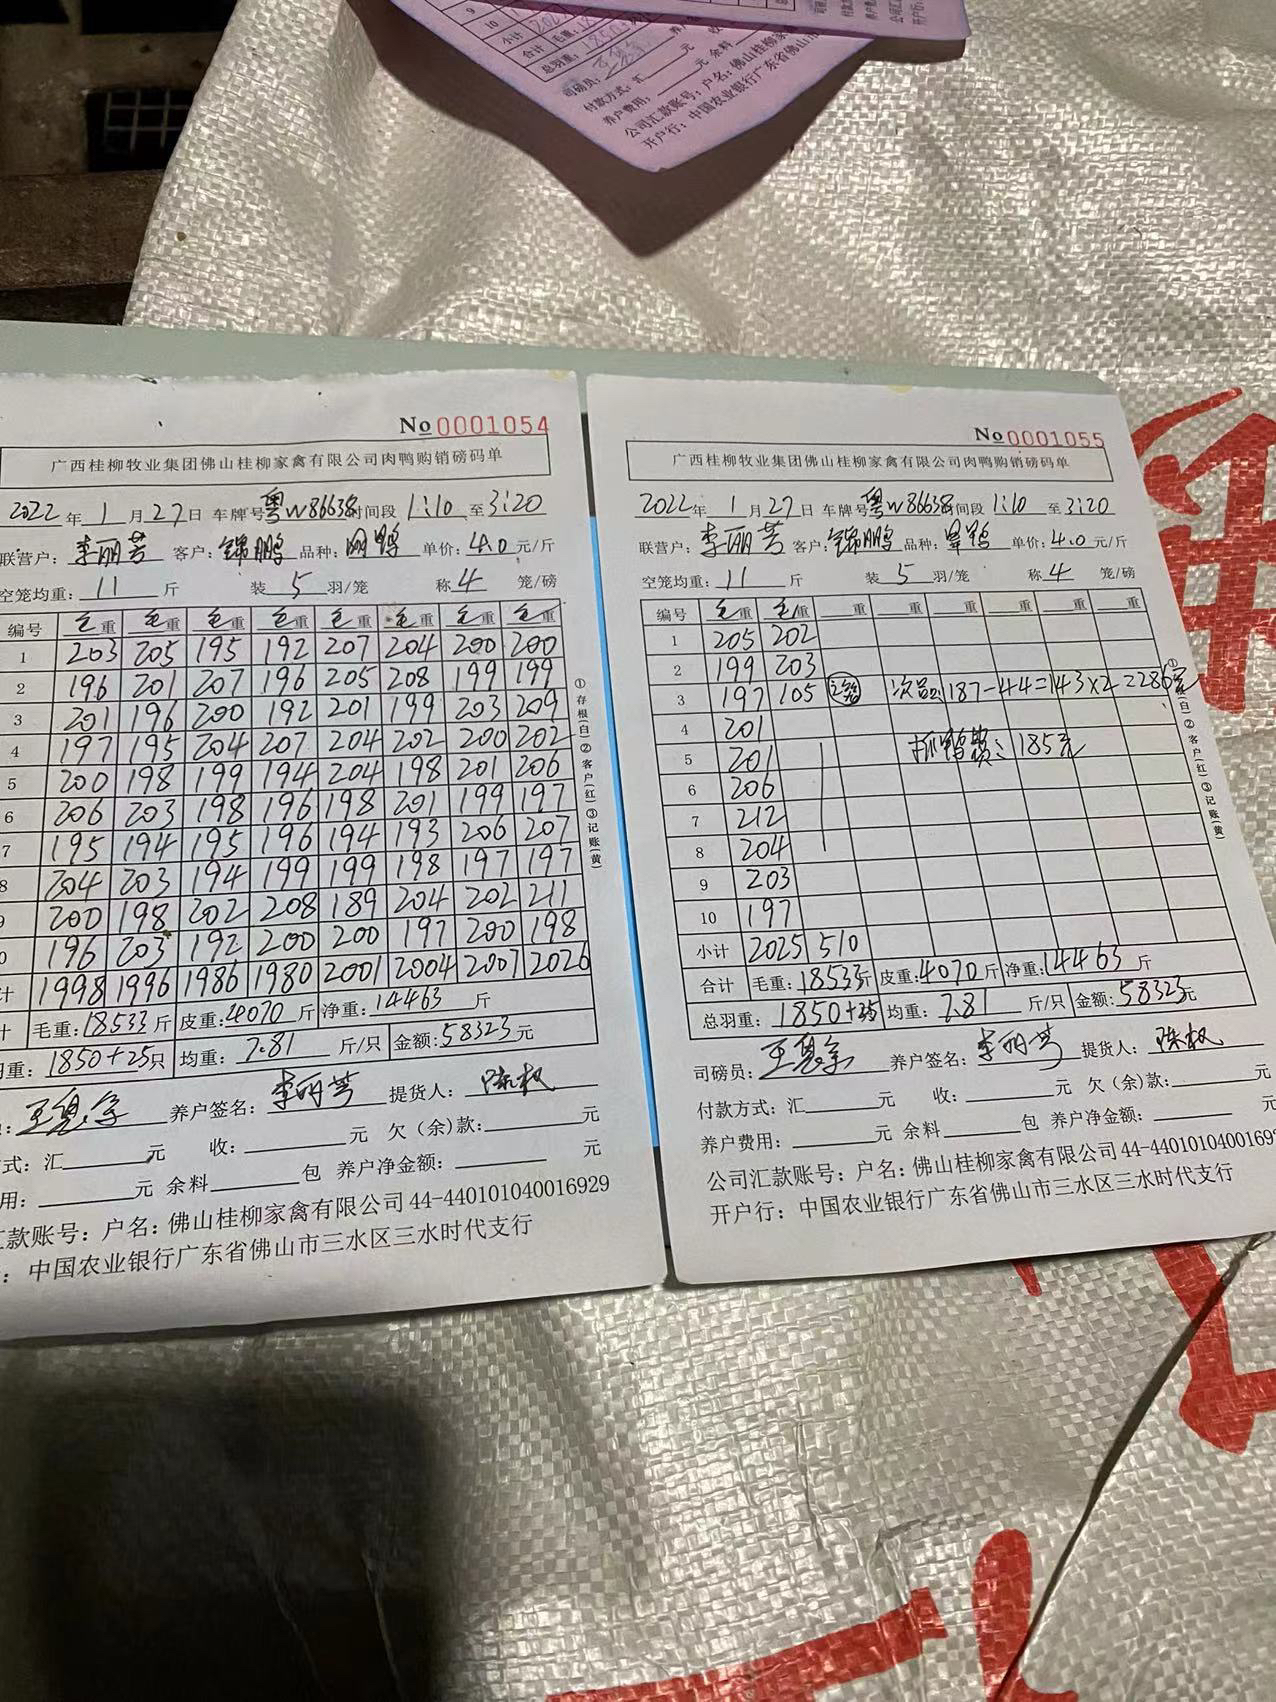 9
10
小计
合计 毛重:
总羽重: 1850
司磅员:
付款方式: 汇 元 收
养户费用: 元 余料
公司汇款账号: 户名: 佛山桂柳家
开户行: 中国农业银行广东省佛山市
No 0001054
广西桂柳牧业集团佛山桂柳家禽有限公司肉鸭购销磅码单
2022年 1月27日 车牌号粤W8663学时间段 1:10 至3:20
联营户: 李丽芳 客户: 锦鹏 品种: 单价: 4.0 元/斤
空笼均重: 11 斤 装 5 羽/笼 称 4 笼/磅
编号 毛重 毛重 毛重 毛重 毛重 毛重 毛重 毛重
1 203 205 195 192 207 204 200 200
2 196 201 207 196 205 208 199 199
3 201 196 200 192 201 199 203 209
4 197 195 204 207 204 202 200 202
5 200 198 199 194 204 198 201 206
6 206 203 198 196 198 201 199 197
7 195 194 195 196 194 193 206 207
8 204 203 194 199 199 198 197 197
9 200 198 202 208 189 204 202 211
0 196 203 192 200 200 197 200 198
计 1998 1996 1986 1980 2001 2004 2007 2026
计 毛重: 18533 斤 皮重: 4070 斤 净重: 14463 斤
羽重: 1850+25只 均重: 7.81 斤/只 金额: 58323 元
: 养户签名: 李丽芳 提货人: 陈权
式: 汇 元 收: 元 欠(余)款: 元
用: 元 余料 包 养户净金额: 元
汇款账号: 户名: 佛山桂柳家禽有限公司 44-440101040016929
: 中国农业银行广东省佛山市三水区三水时代支行
①存根(白)②客户(红)③记账(黄)
No 0001055
广西桂柳牧业集团佛山桂柳家禽有限公司肉鸭购销磅码单
2022年 1月27日 车牌号粤W8663学时间段 1:10 至 3:20
联营户: 李丽芳 客户: 锦鹏 品种: 单价: 4.0 元/斤
空笼均重: 11 斤 装 5 羽/笼 称 4 笼/磅
编号 毛重 毛重 重 重 重 重 重 重
1 205 202
2 199 203
3 197 105 2笼 次品: 187-44=143×2=286元
4 201
5 201 抓鸭费: 185元
6 206
7 212
8 204
9 203
10 197
小计 2025 510
合计 毛重: 18533斤 皮重: 4070 斤 净重: 14463 斤
总羽重: 1850+25 均重: 7.81 斤/只 金额: 58323元
司磅员: 养户签名: 李丽芳 提货人: 陈权
付款方式: 汇 元 收: 元 欠(余)款: 元
养户费用: 元 余料 包 养户净金额: 元
公司汇款账号: 户名: 佛山桂柳家禽有限公司 44-4401010400169
开户行: 中国农业银行广东省佛山市三水区三水时代支行
①(白)②客户(红)③记账(黄)